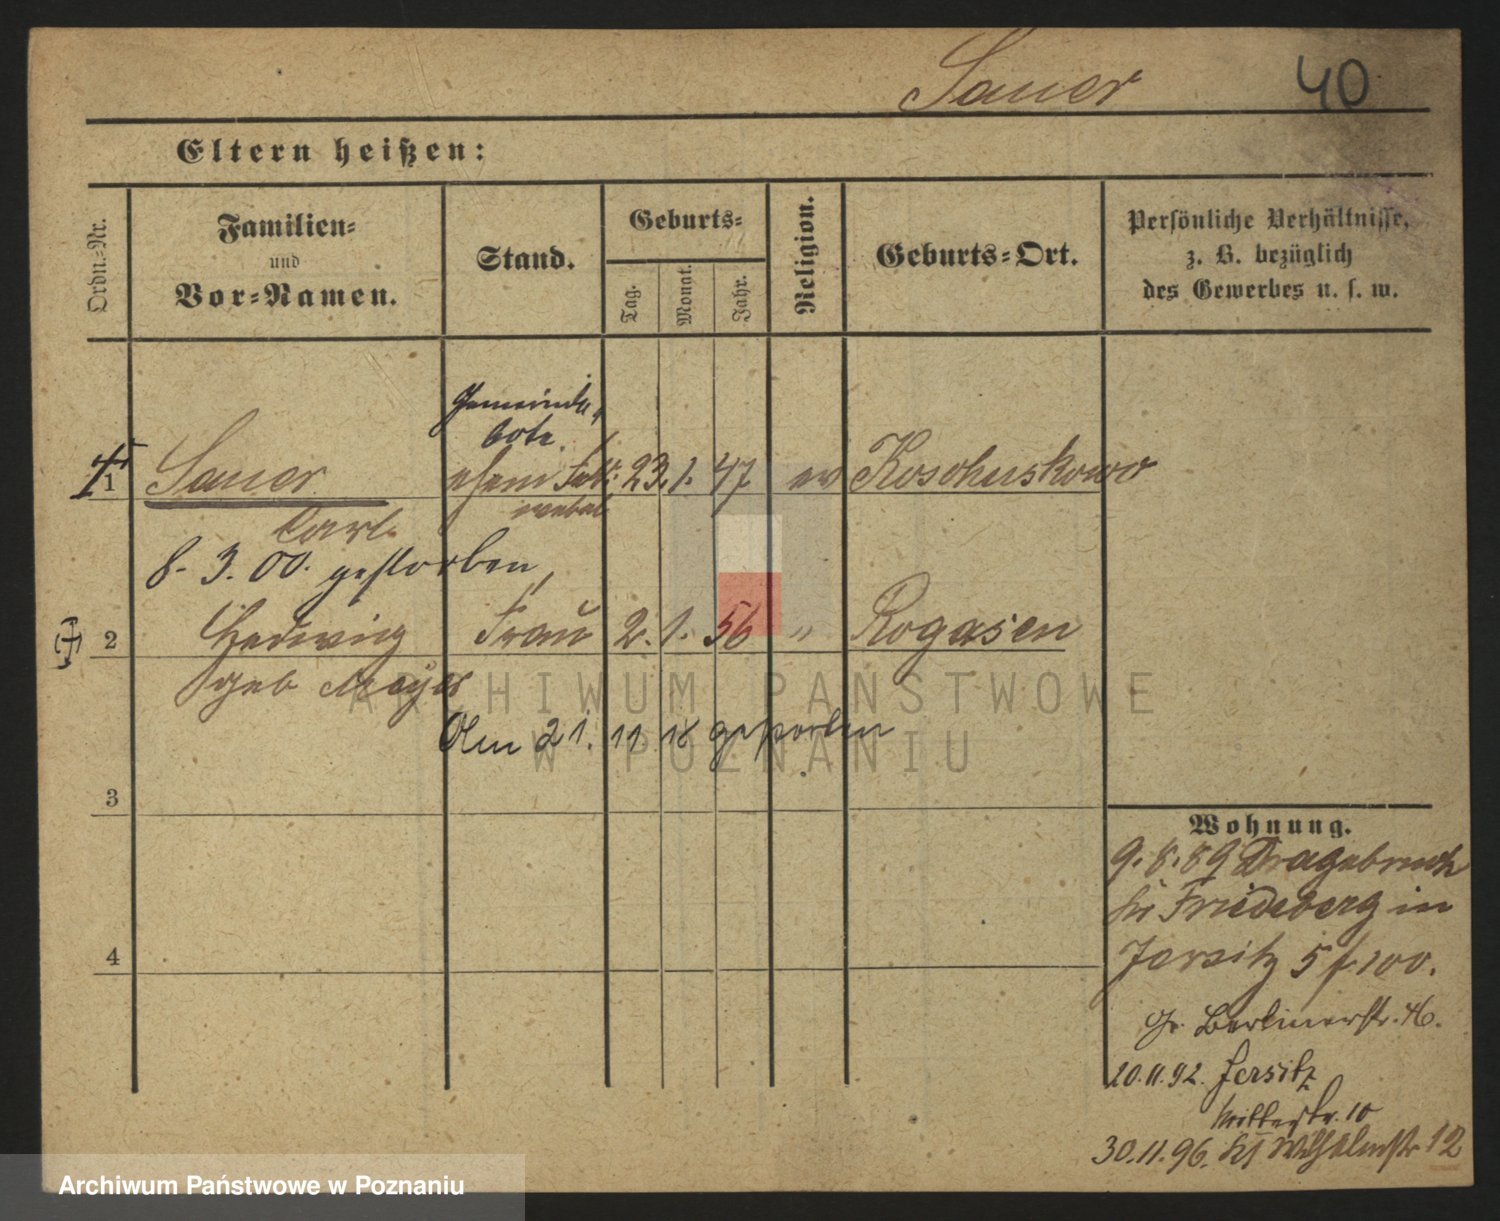 Sauer 40
Eltern heißen:
Ordn.-Nr.
Familien-
und
Vor-Namen.
Stand.
Geburts-
Tag.
Monat.
Jahr.
Religion.
Geburts-Ort.
Persönliche Verhältnisse,
z. B. bezüglich
des Gewerbes u. s. w.
Gemeinde
bote
1 Sauer 23. 1. 47 ev
webel
Carl
8. 3. 00. gestorben
2 Hedwig Frau 2. 1. 56 " Rogasen
geb
ARCHIWUM PAŃSTWOWE
21. 11 18 gestorben
W POZNANIU
3
Wohnung.
9. 8. 89 Dragebruch
Friedeberg in
4
Jersitz 5 f. 100.
Gr. Berlinerstr. 46.
20.11.92. Jersitz
Mittelstr. 10
30.11.96. Wilhelmstr 12
Archiwum Państwowe w Poznaniu